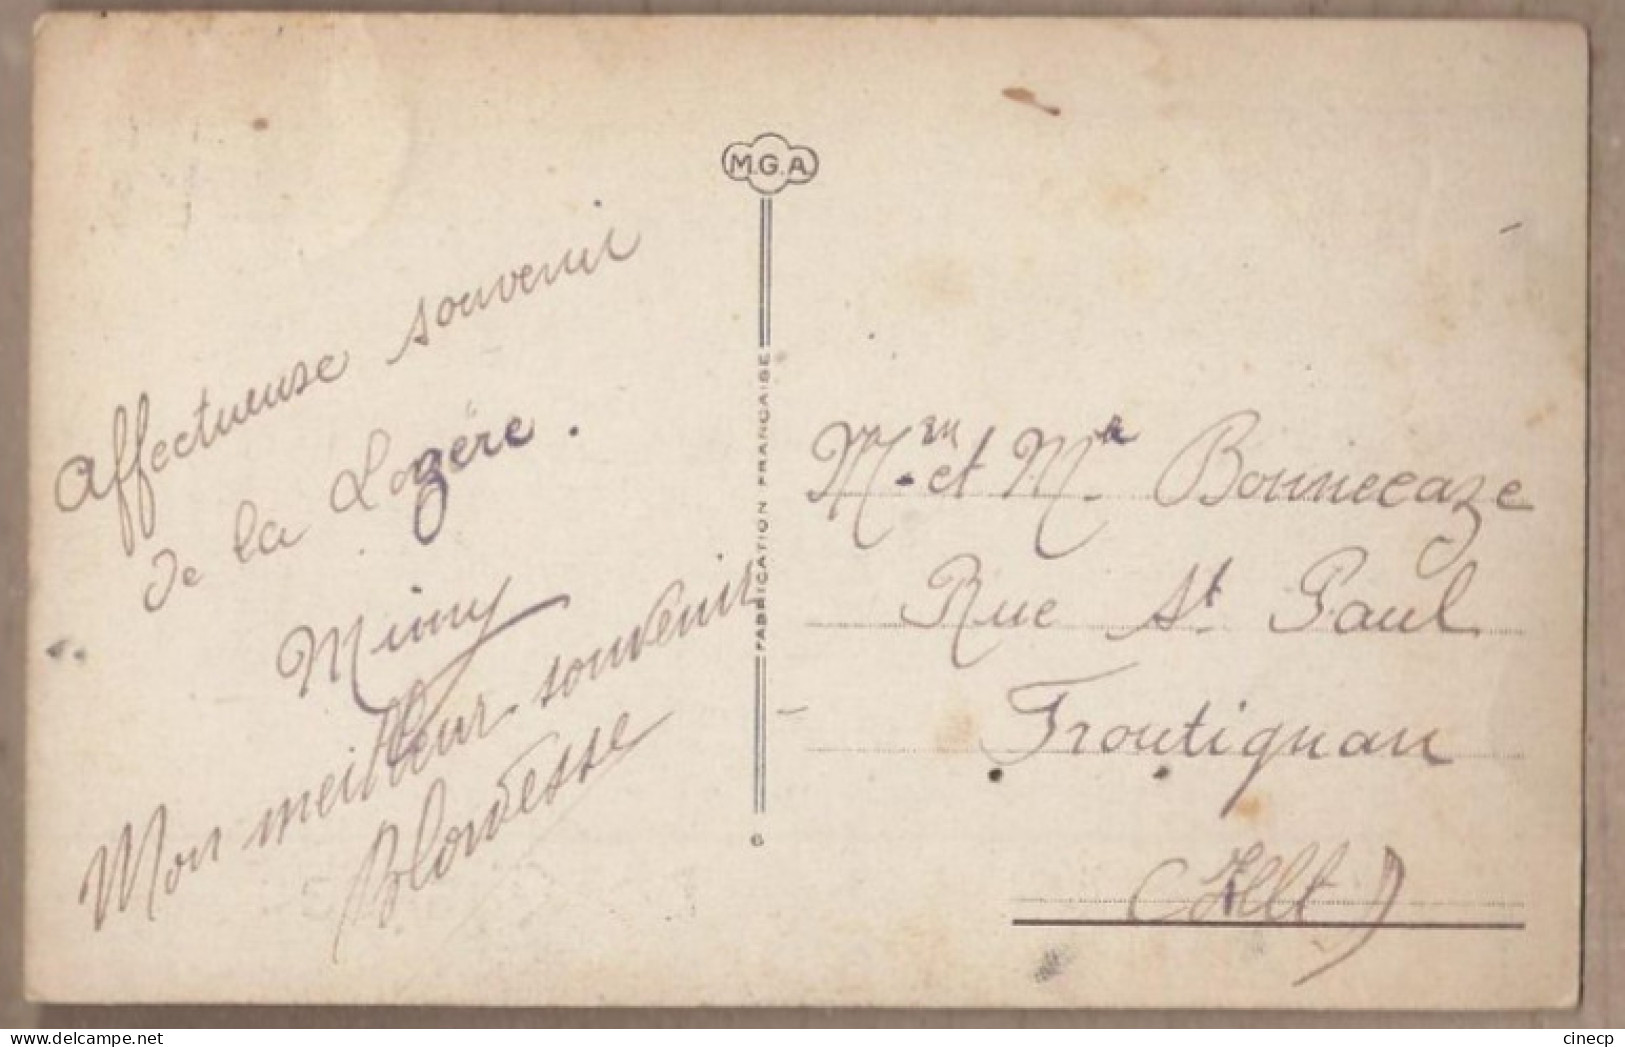 M.G.A
Affectueuse souvenir
de la Logère.
Mimy
Mon meilleur souvenir
FABRICATION FRANCAISE
6
Mm. et Mr. Bonnecaze
Rue St. Paul
Frontignan
(Hlt)
delcampe.net
cinecp